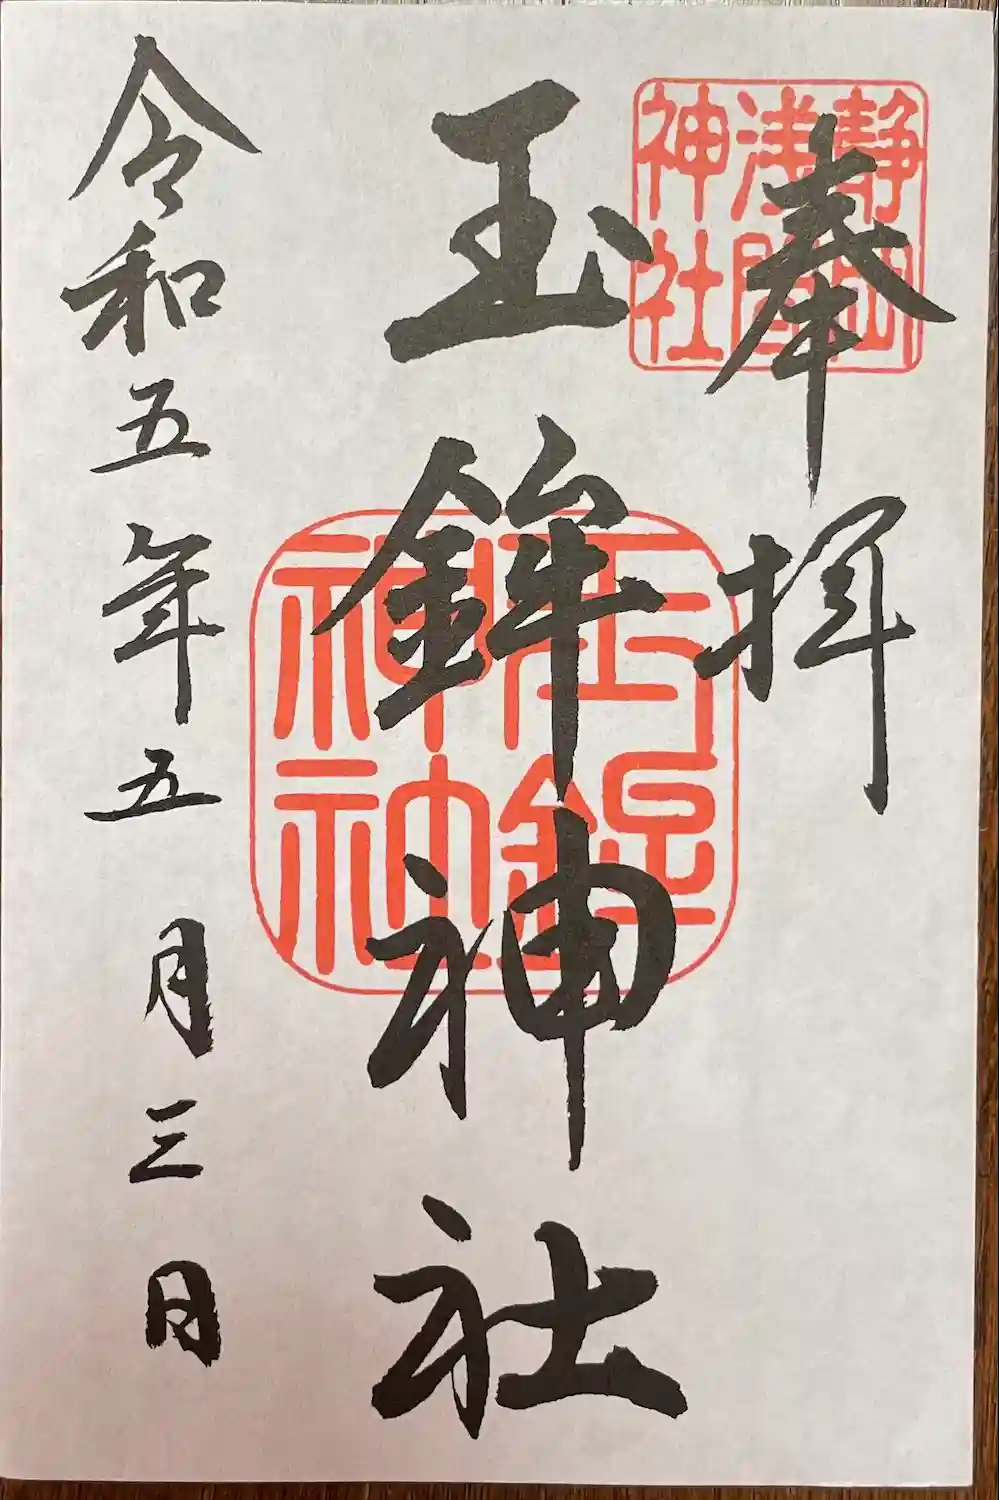 奉拝
静岡浅間神社
玉鉾神社
玉鉾神社
令和五年五月三日